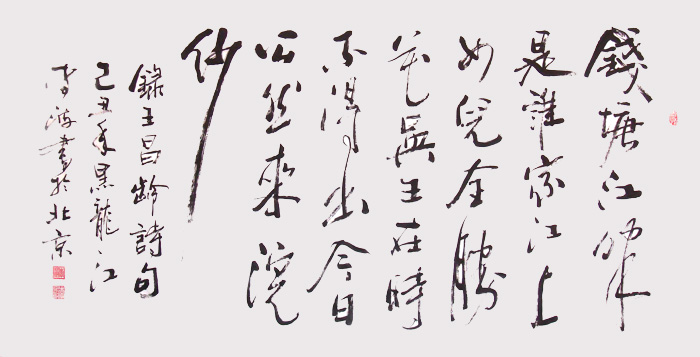 錢塘江畔
是誰家江上
女兒全勝
花吳王在時
不得出今日
公然來浣
紗
錄王昌齡詩句
己丑年黑龍江
李書於北京